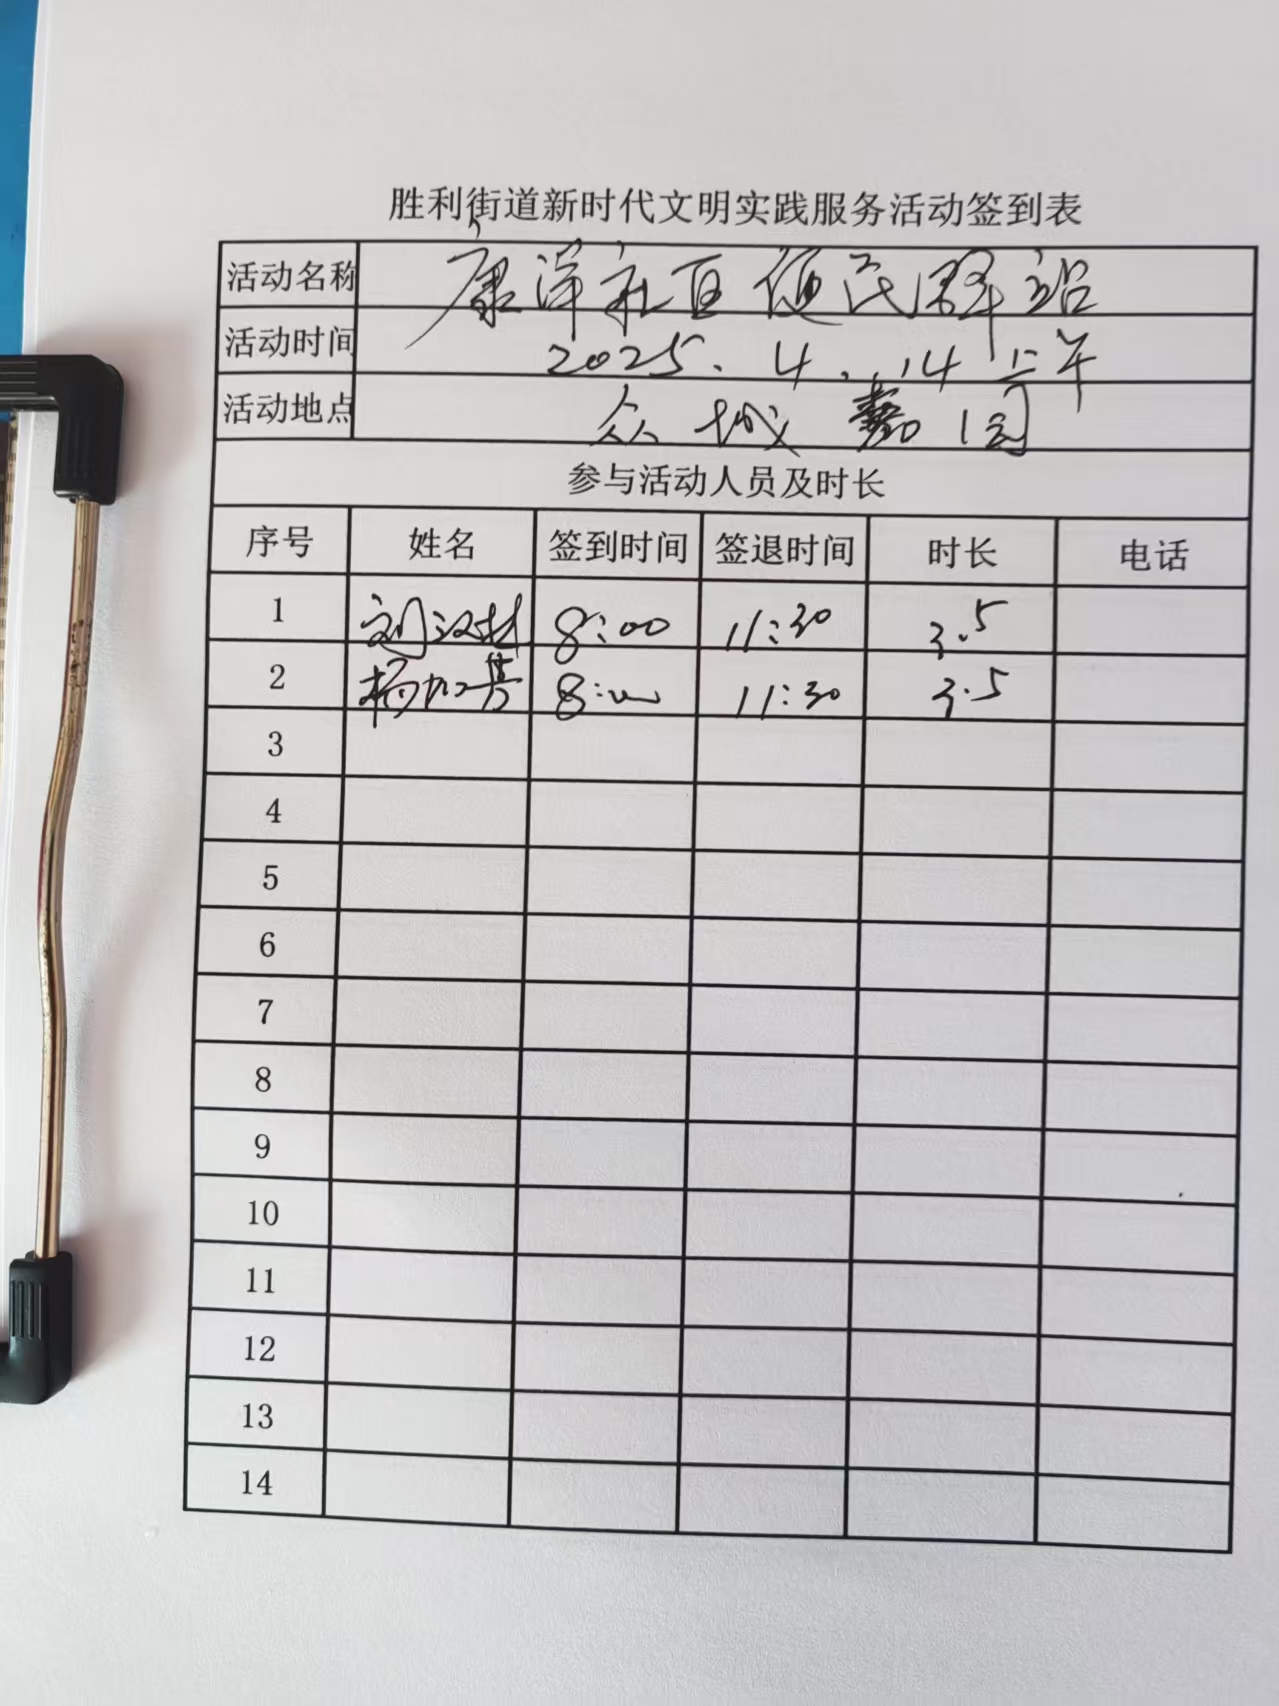 胜利街道新时代文明实践服务活动签到表
活动名称 康洋社区便民驿站
活动时间 2025.4.14上午
活动地点 众城嘉园
参与活动人员及时长
序号 姓名 签到时间 签退时间 时长 电话
1 刘汉林 8:00 11:30 3.5
2 8:00 11:30 3.5
3
4
5
6
7
8
9
10
11
12
13
14